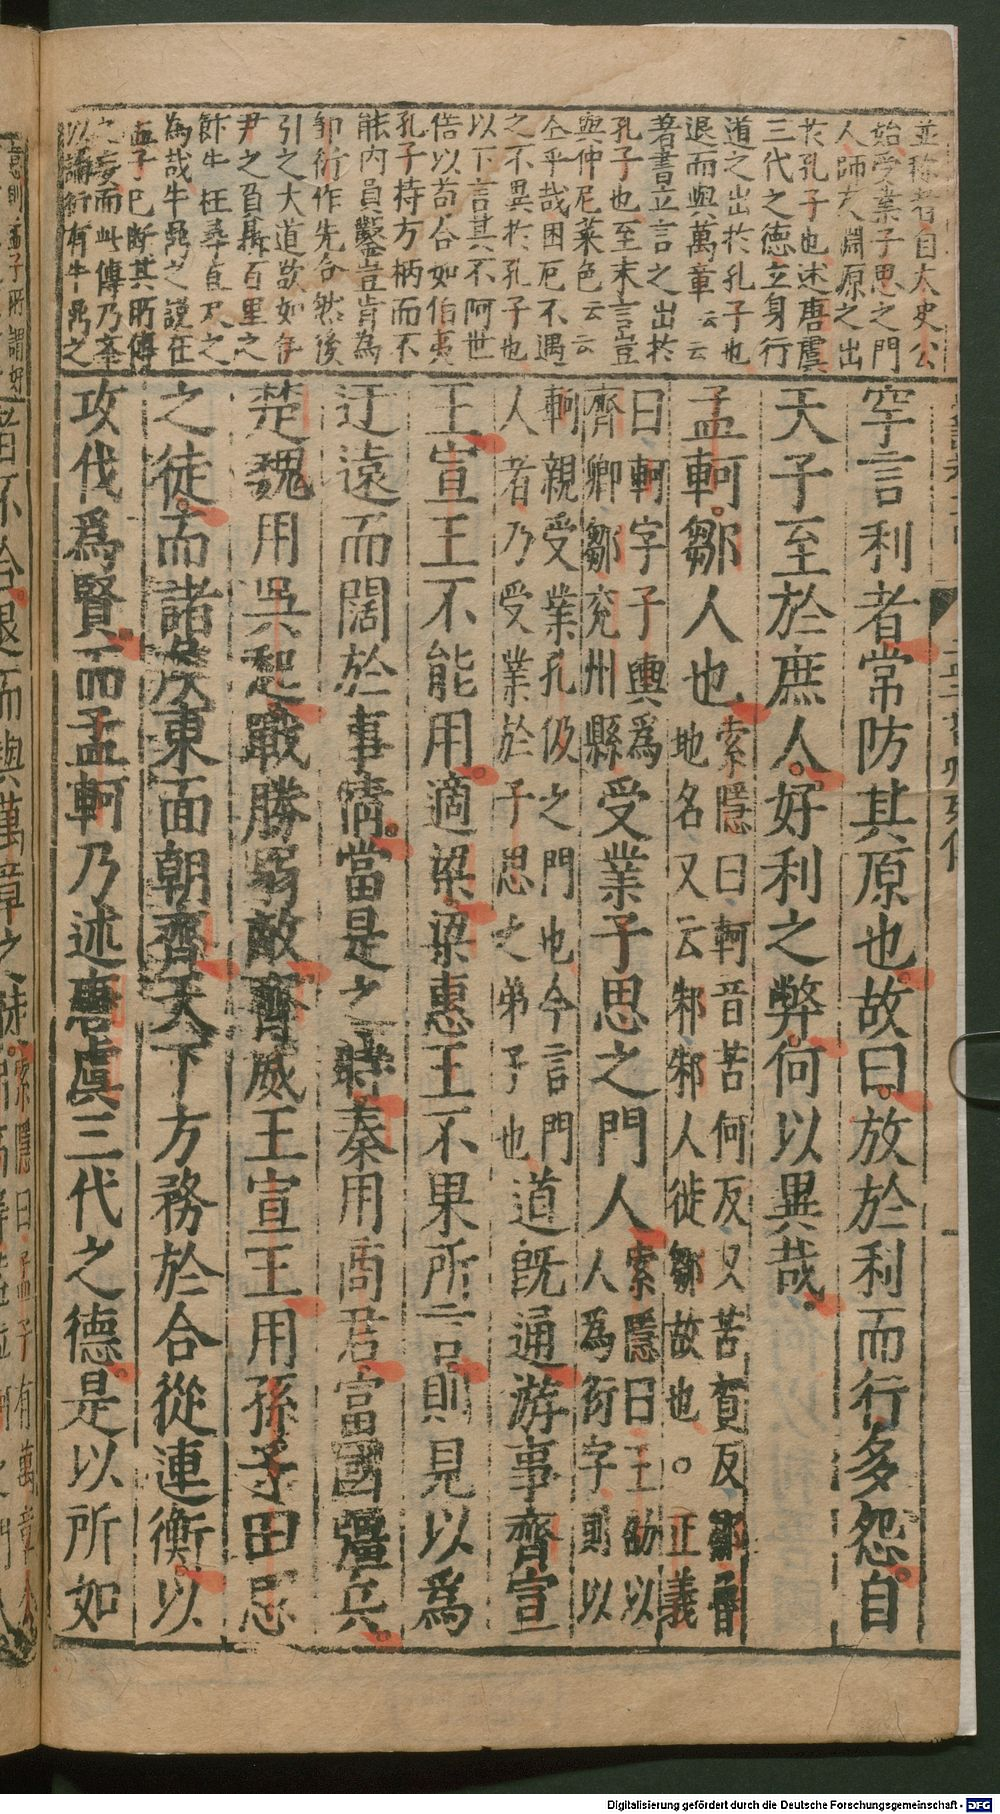 並稱者自太史公
始受業子思之門
人師友淵原之出
於孔子也述唐虞
三代之德立身行
道之出於孔子也
退而與萬章云云
著書立言之出於
孔子也至末言豈
與仲尼菜色云云
仝乎哉困厄不遇
之不異於孔子也
以下言其不阿世
倍以苟合如伯夷
孔子持方柄而不
能內員鑿豈肯為
鄒衍作先合然後
引之大道欲如伊
尹之負鼎百里之
飰牛枉尋直尺之
為哉牛鼎之說在
孟子已斷其所傳
之妄而此傳乃
以論衍有牛鼎之
罕言利者常防其原也故曰放於利而行多怨自
天子至於庶人好利之弊何以異哉
孟軻鄒人也
索隱曰軻音苦何反又苦賀反鄒魯
地名又云邾邾人徙鄒故也○正義
曰軻字子輿為
齊卿鄒兗州縣
受業子思之門人
索隱曰王劭以
人為衍字則以
軻親受業孔伋之門也今言門
人者乃受業於子思之弟子也
道既通游事齊宣
王宣王不能用適梁梁惠王不果所言則見以為
迂遠而闊於事情當是之時秦用商君富國彊兵
楚魏用吳起戰勝弱敵齊威王宣王用孫子田忌
之徒而諸侯東面朝齊天下方務於合從連衡以
攻伐爲賢而孟軻乃述唐虞三代之德是以所如
Digitalisierung gefördert durch die Deutsche Forschungsgemeinschaft - DFG